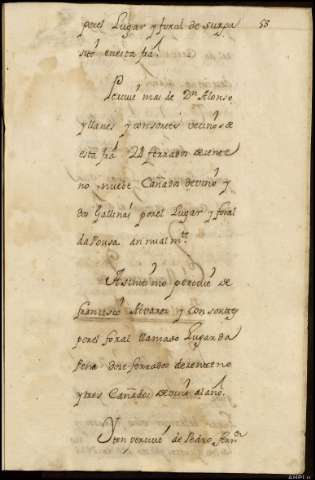 por el Lugar y foral de surga 58
sito en esta fra.
Percivi mas de Dn Alonso
y llanes y consortes vecinos de
esta fra 24 ferrados de cente
no nueve Cañados de vino y
dos Gallinas por el Lugar y foral
da Pousa anualmte
Asimismo percivi de
francisco Alvarez y consortes
por el foral llamado Lugar da
Pena doce ferrados de centeno
y tres Cañados de vino al año.
Yten percivi de Pedro Fernz
AHPL